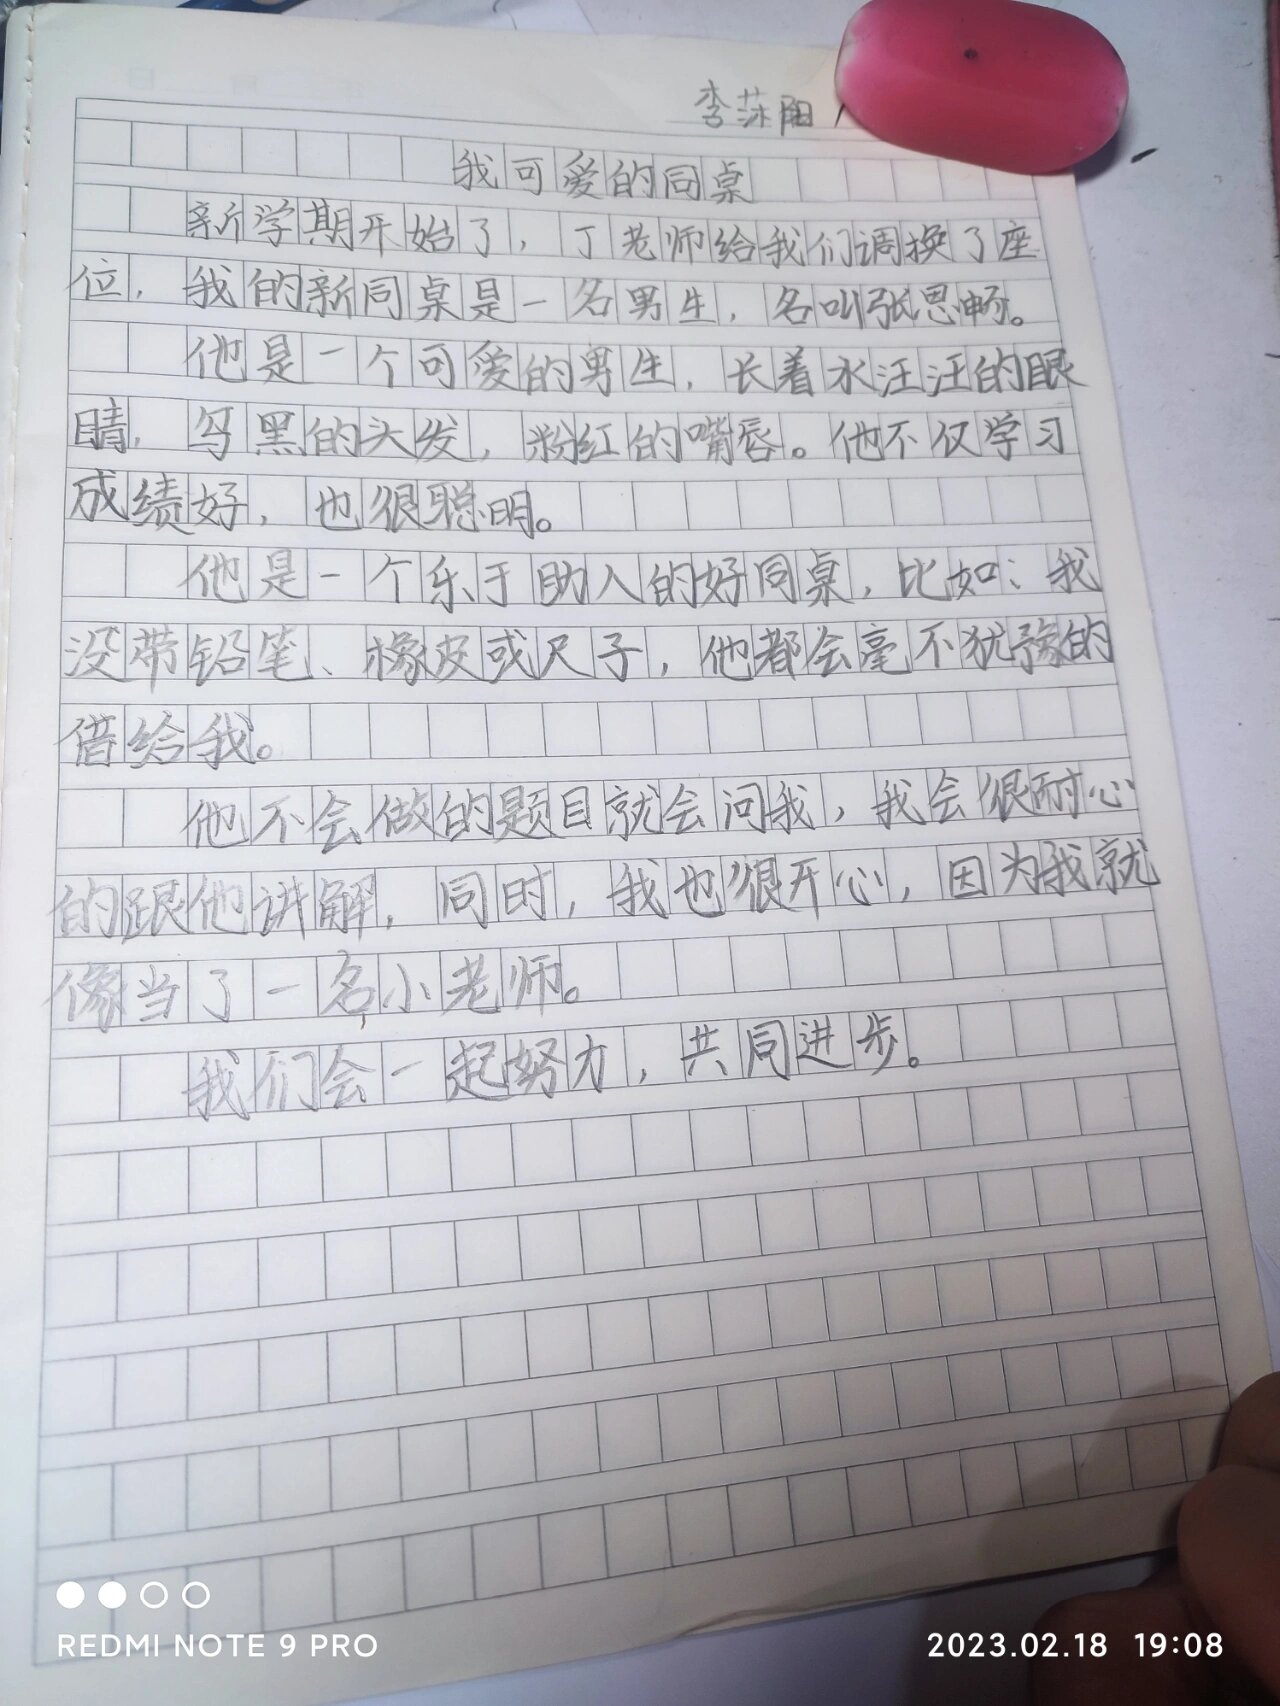 李莯阳
我可爱的同桌
新学期开始了，丁老师给我们调换了座
位，我的新同桌是一名男生，名叫张思畅。
他是一个可爱的男生，长着水汪汪的眼
睛，乌黑的头发，粉红的嘴唇。他不仅学习
成绩好，也很聪明。
他是一个乐于助人的好同桌，比如：我
没带铅笔、橡皮或尺子，他都会毫不犹豫的
借给我。
他不会做的题目就会问我，我会很耐心
的跟他讲解，同时，我也很开心，因为我就
像当了一名小老师。
我们会一起努力，共同进步。
REDMI NOTE 9 PRO
2023.02.18 19:08